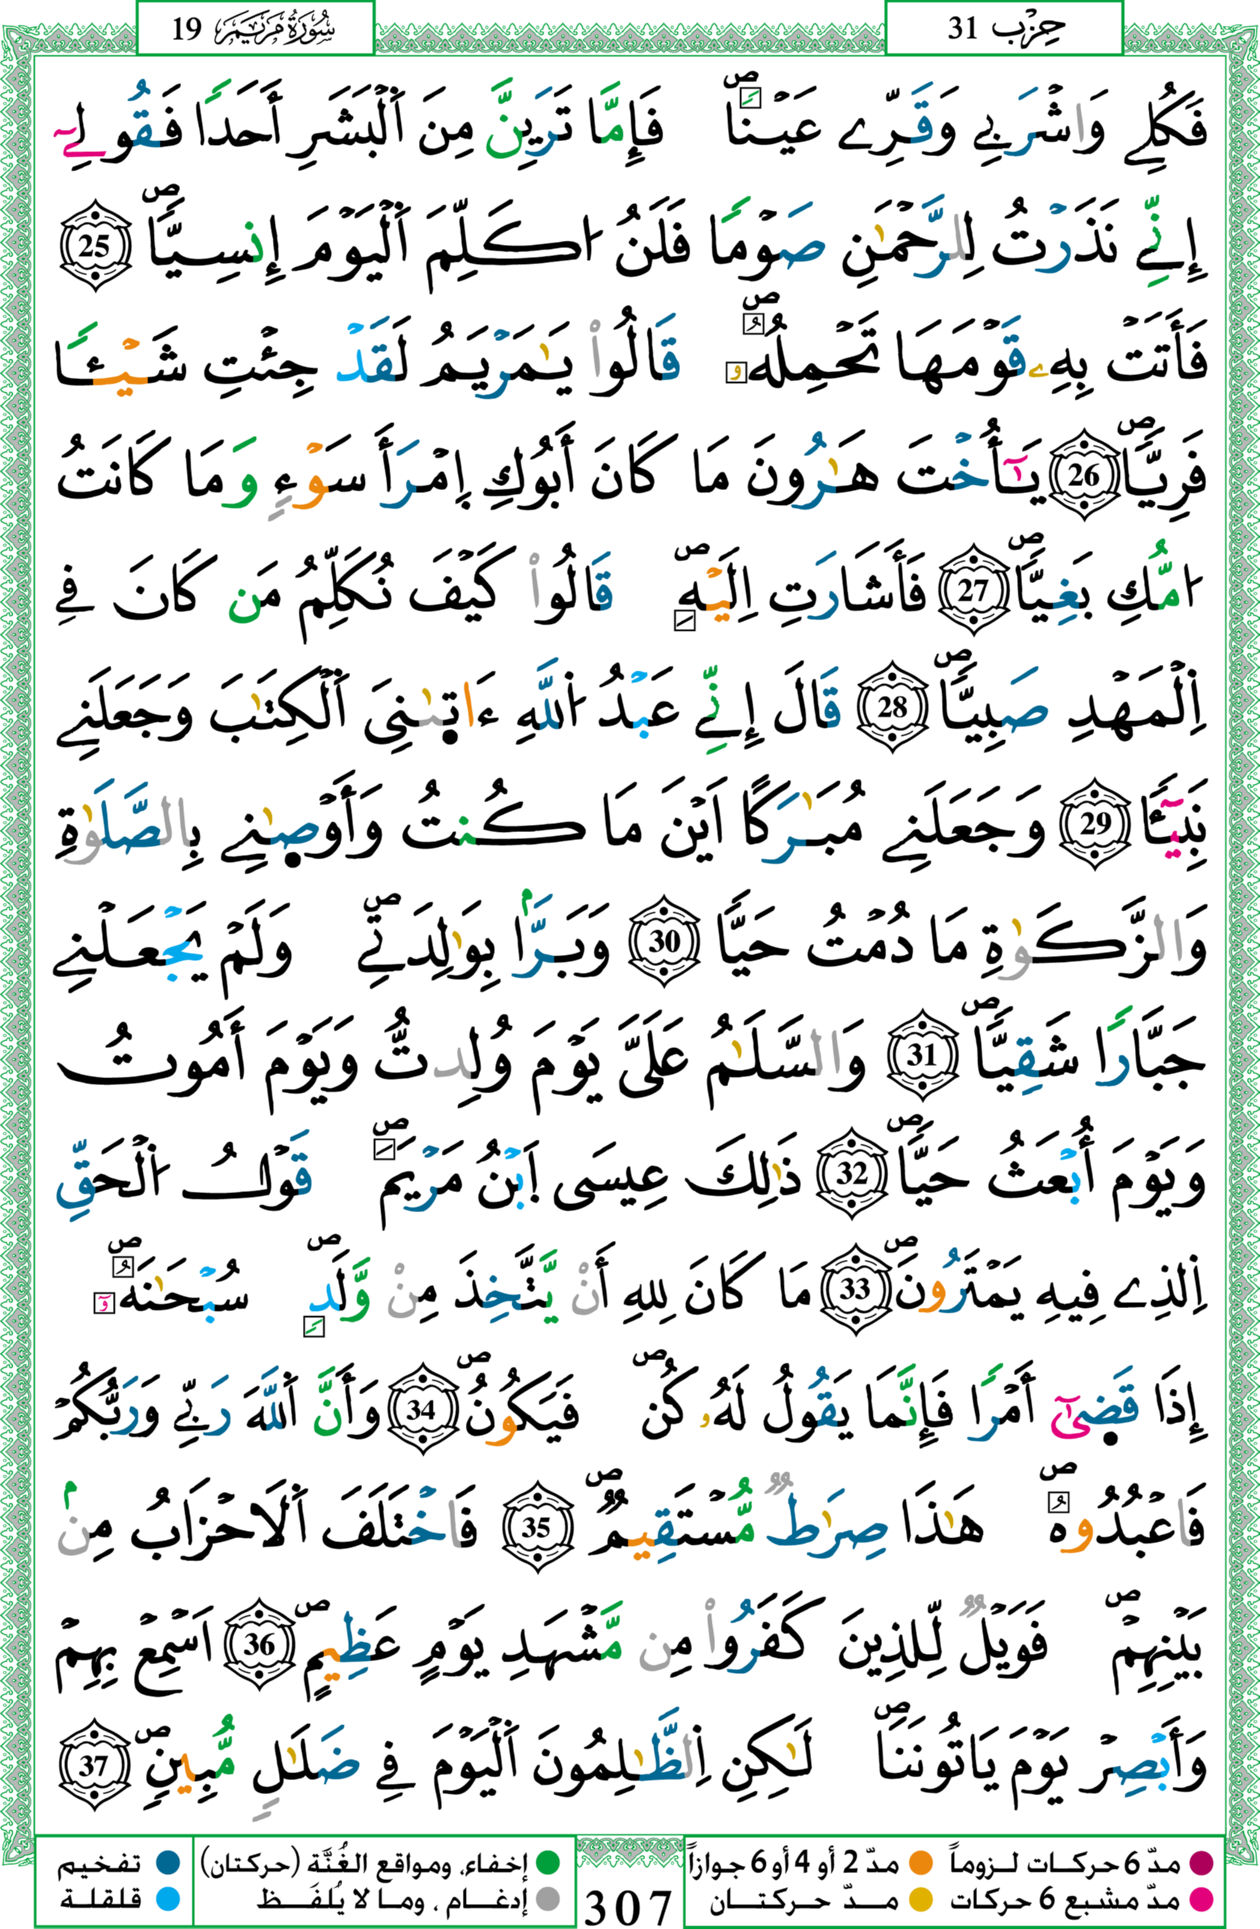 سُورَةُ مَرْيَم 19
حِزْب 31
فَكُلِے وَاشْرَبِے وَقَرِّے عَيْناٗۖ فَإِمَّا تَرَيِنَّ مِنَ اَ۬لْبَشَرِ أَحَداٗ فَقُولِےٓ
إِنِّے نَذَرْتُ لِلرَّحْمَٰنِ صَوْماٗ فَلَنُ ا۟كَلِّمَ اَ۬لْيَوْمَ إِنسِيّاٗۖ 25
فَأَتَتْ بِهِۦ قَوْمَهَا تَحْمِلُهُۥۖ قَالُواْ يَٰمَرْيَمُ لَقَدْ جِئْتِ شَيْـٔاٗ
فَرِيّاٗۖ 26 يَٰٓأُخْتَ هَٰرُونَ مَا كَانَ أَبُوكِ اِ۪مْرَأَ سَوْءٖ وَمَا كَانَتُ
ا۟مُّكِ بَغِيّاٗۖ 27 فَأَشَارَتِ اِلَيْهِۖ قَالُواْ كَيْفَ نُكَلِّمُ مَن كَانَ فِے
اِ۬لْمَهْدِ صَبِيّاٗۖ 28 قَالَ إِنِّے عَبْدُ اُ۬للَّهِ ءَاتٜىٰنِىَ اَ۬لْكِتَٰبَ وَجَعَلَنِے
نَبِيٓـٔاٗ 29 وَجَعَلَنِے مُبَٰرَكاً اَيْنَ مَا كُنتُ وَأَوْصٜىٰنِے بِالصَّلَوٰةِ
وَالزَّكَوٰةِ مَا دُمْتُ حَيّاٗ 30 وَبَرّاَۢ بِوَٰلِدَتِےۖ وَلَمْ يَجْعَلْنِے
جَبَّاراٗ شَقِيّاٗۖ 31 وَالسَّلَٰمُ عَلَىَّ يَوْمَ وُلِدتُّ وَيَوْمَ أَمُوتُ
وَيَوْمَ أُبْعَثُ حَيّاٗۖ 32 ذَٰلِكَ عِيسَى اَ۪بْنُ مَرْيَمَۖ قَوْلُ اُ۬لْحَقِّ
اِ۬لذِے فِيهِ يَمْتَرُونَۖ 33 مَا كَانَ لِلهِ أَنْ يَّتَّخِذَ مِنْ وَّلَدٖۖ سُبْحَٰنَهُۥٓۖ
إِذَا قَضٜىٰٓ أَمْراٗ فَإِنَّمَا يَقُولُ لَهُۥ كُنۖ فَيَكُونُۖ 34 وَأَنَّ اَ۬للَّهَ رَبِّے وَرَبُّكُمْ
فَاعْبُدُوهُۖ هَٰذَا صِرَٰطٞ مُّسْتَقِيمٞۖ 35 فَاخْتَلَفَ اَ۬لَاحْزَابُ مِنۢ
بَيْنِهِمْۖ فَوَيْلٞ لِّلذِينَ كَفَرُواْ مِن مَّشْهَدِ يَوْمٍ عَظِيمٍۖ 36 اَسْمِعْ بِهِمْ
وَأَبْصِرْ يَوْمَ يَاتُونَنَاۖ لَٰكِنِ اِ۬لظَّٰلِمُونَ اَ۬لْيَوْمَ فِے ضَلَٰلٖ مُّبِينٖۖ 37
مدّ 6 حركات لـزوماً مدّ 2 أو 4 أو 6 جوازاً إخفاء، ومواقع الغُنَّة (حركتان) تفخيم
مدّ مشبع 6 حركات مـدّ حـركتـان إدغـام ، ومـا لا يُلفَـظ قلقلة
307